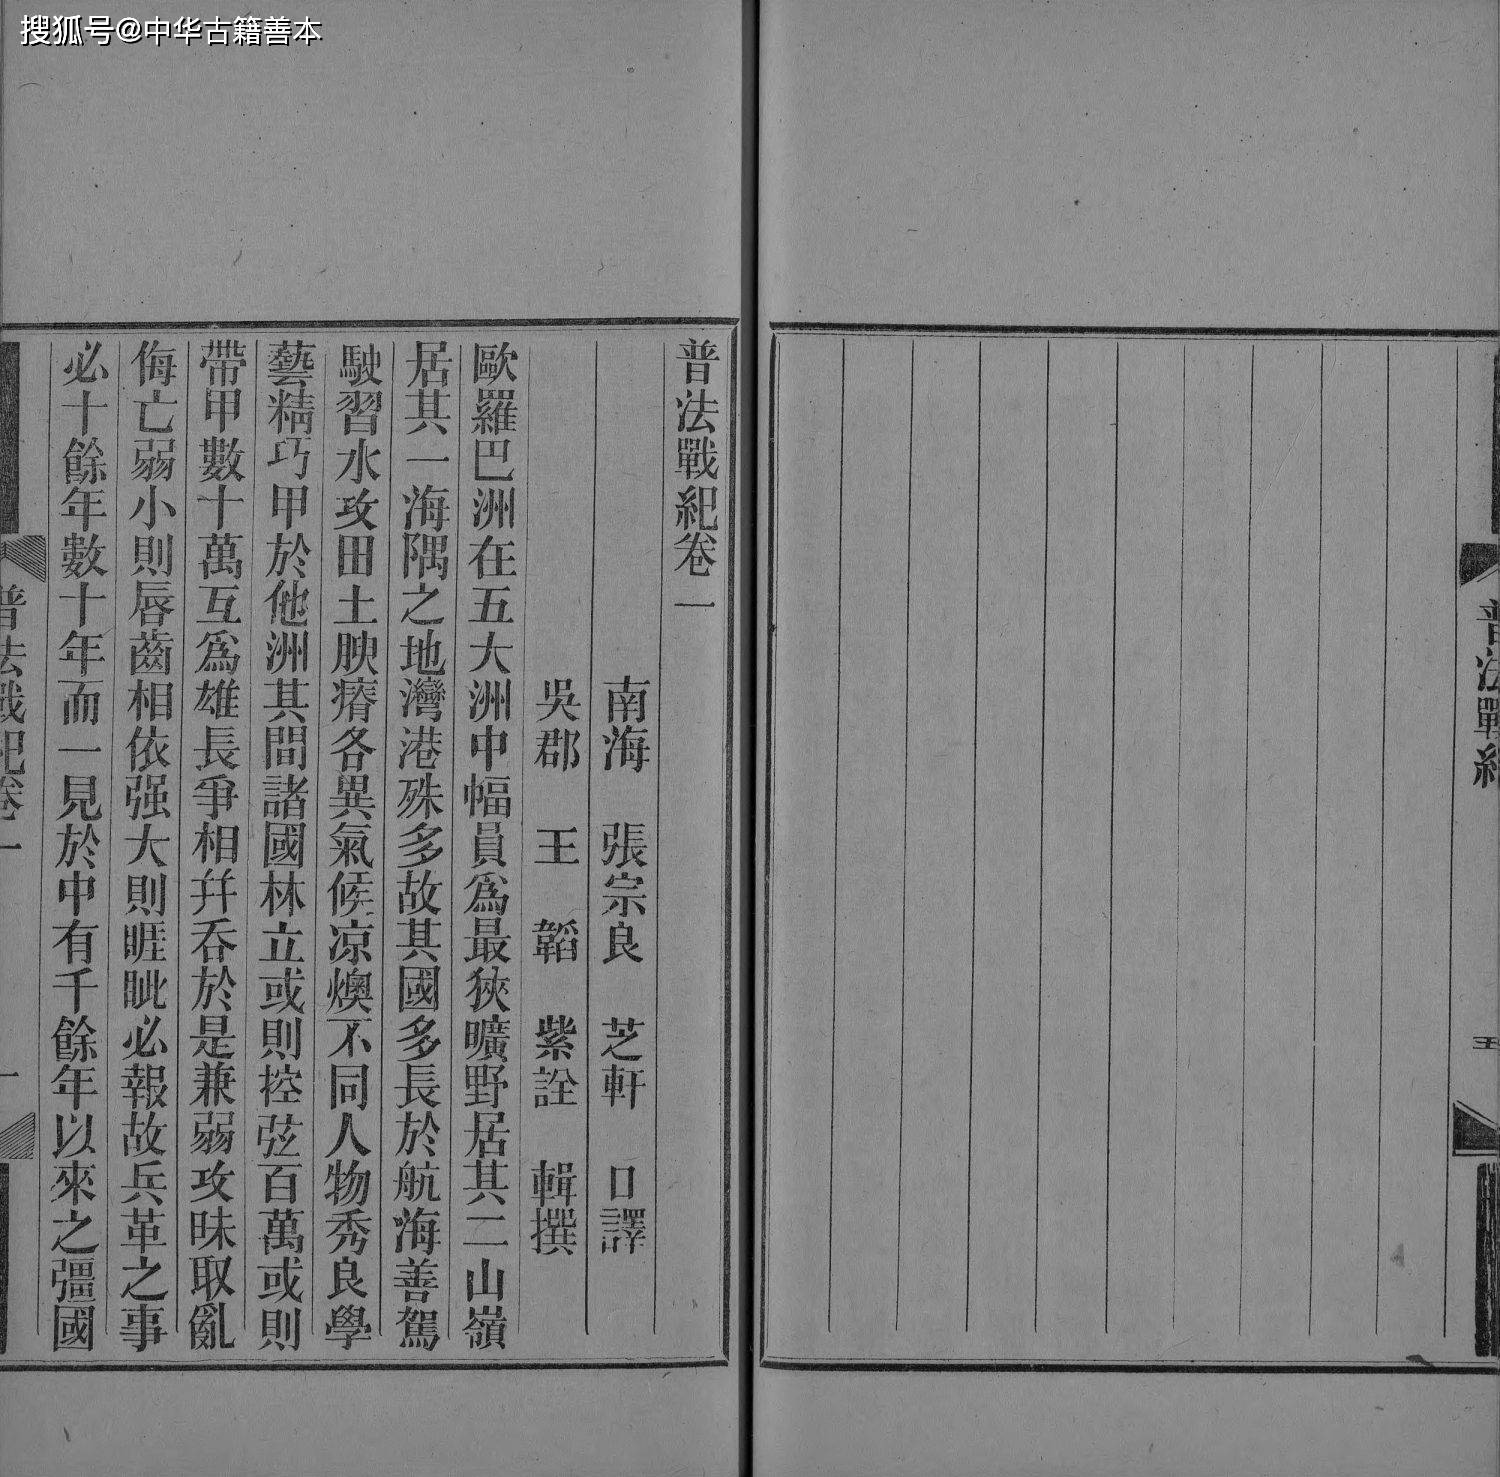 搜狐号@中华古籍善本
普法戰紀
五
普法戰紀卷一
南海 張宗良 芝軒 口譯
吳郡 王 韜 紫詮 輯撰
歐羅巴洲在五大洲中幅員爲最狹曠野居其二山嶺
居其一海隅之地灣港殊多故其國多長於航海善駕
駛習水攻田土腴瘠各異氣候凉燠不同人物秀良學
藝精巧甲於他洲其間諸國林立或則控弦百萬或則
帶甲數十萬互爲雄長爭相幷吞於是兼弱攻昧取亂
侮亡弱小則唇齒相依强大則睚眦必報故兵革之事
必十餘年數十年而一見於中有千餘年以來之彊國
普法戰紀卷一
一